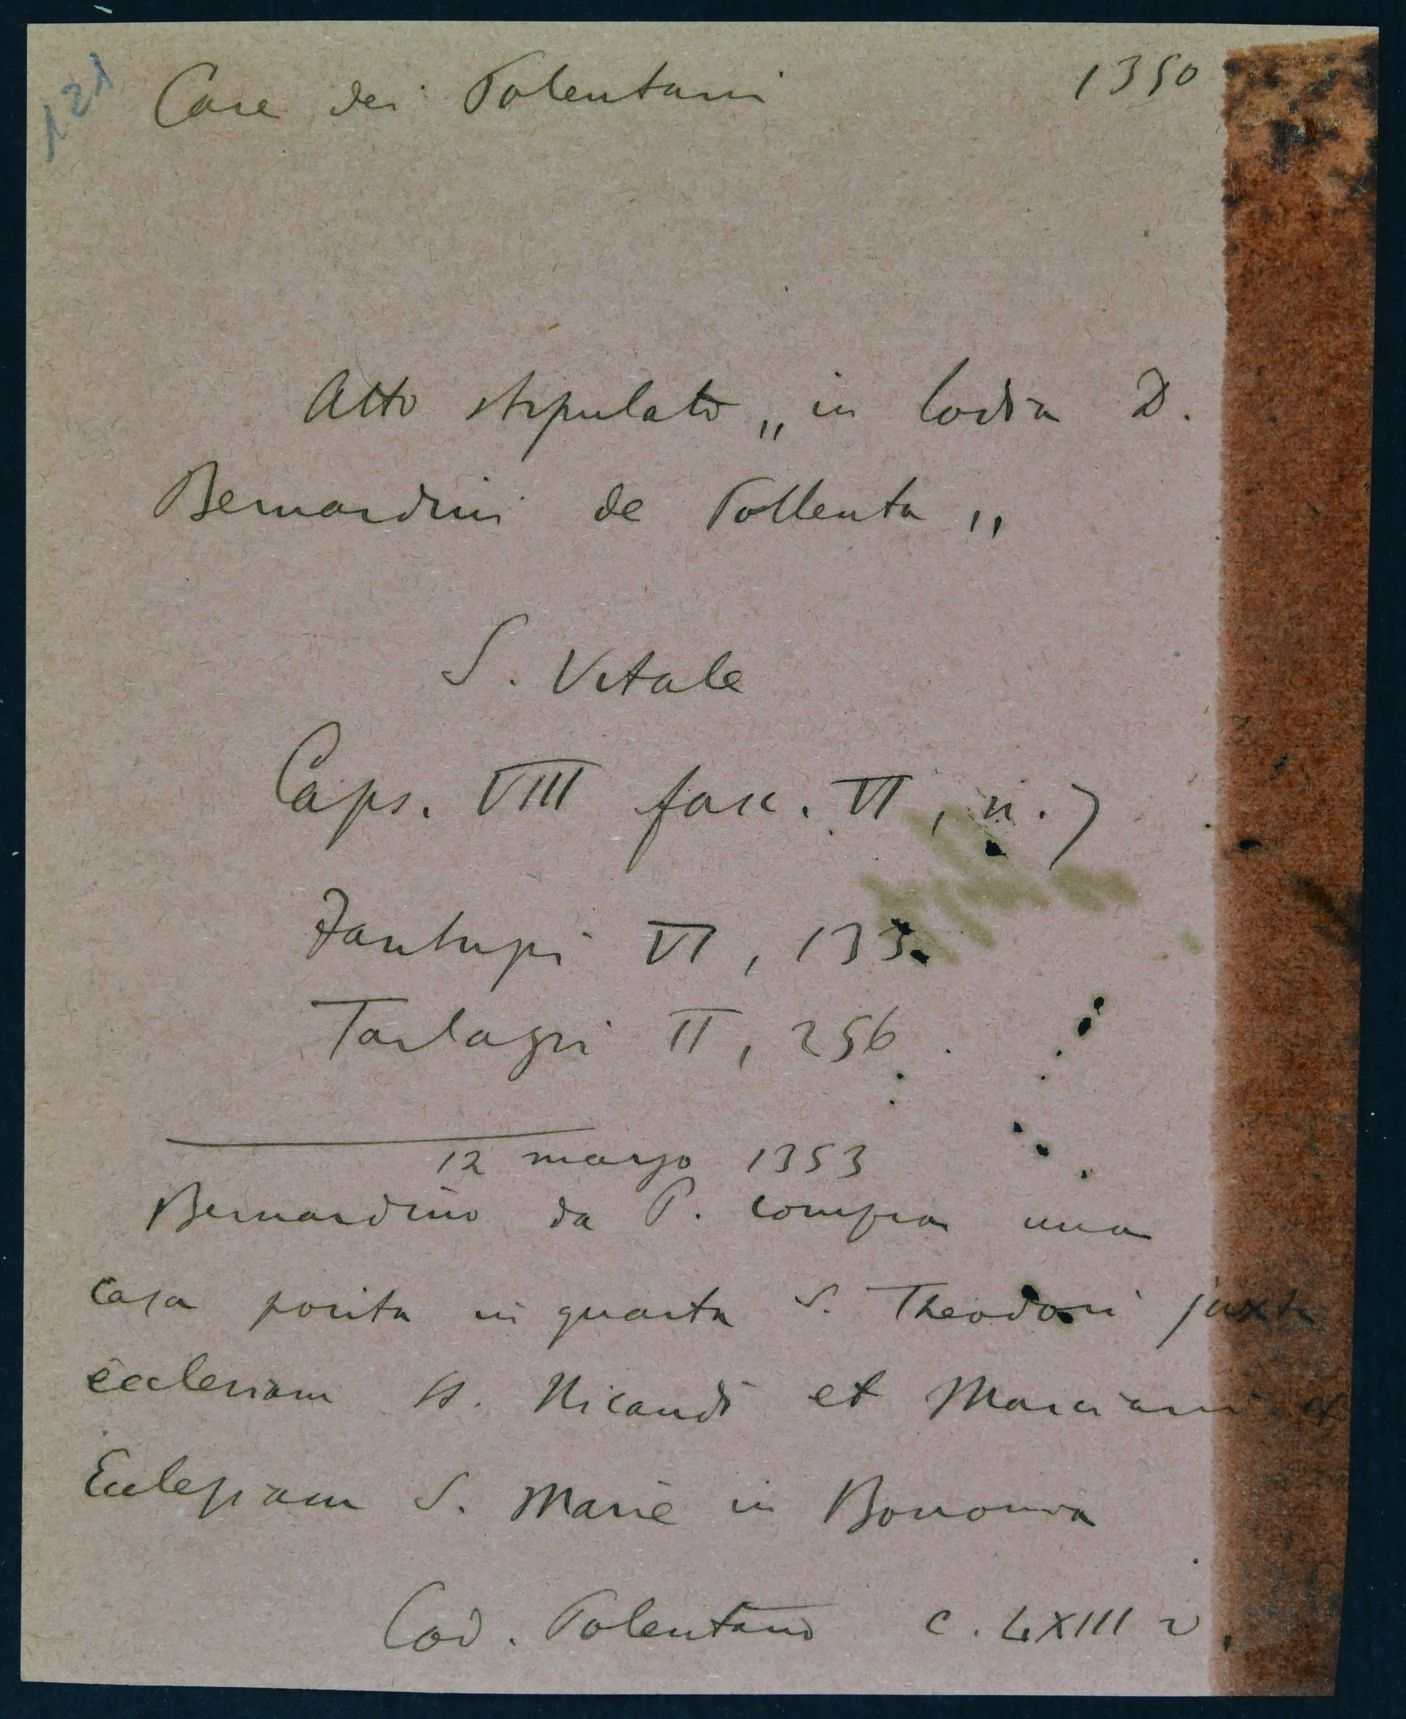 121
Case dei Polentani 1350
Atto stipulato „ in lodia D.
Bernardini de Pollenta „
S. Vitale
Caps. VIII fasc. VI, n. 7
Fantuzzi VI, 133
Tarlazzi II, 256
12 marzo 1353
Bernardino da P. compra una
casa posita in guaita S. Theodori juxta
ecclesiam SS. Nicandi et Marciani et
Ecclesiam S. Marie in Bonomia
Cod. Polentano c. LXIII v.